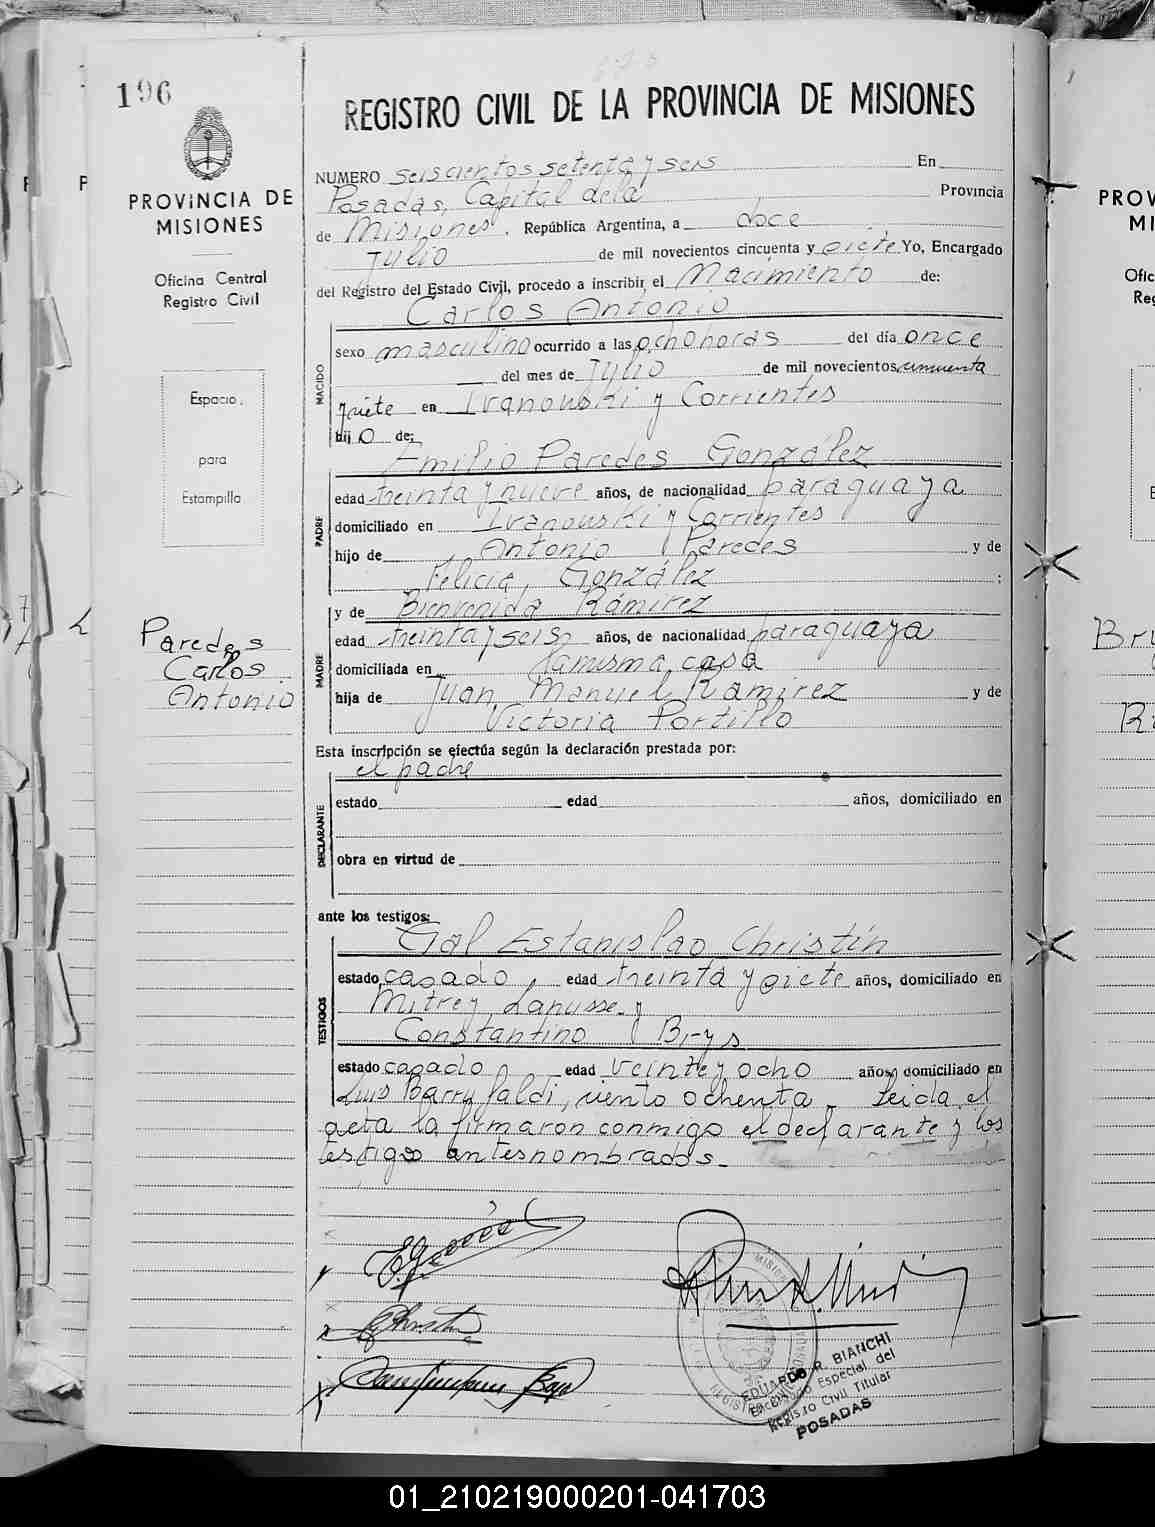 196
PROVINCIA DE
MISIONES
Oficina Central
Registro Civil
Espacio
para
Estampilla
Paredes
Carlos
Antonio
REGISTRO CIVIL DE LA PROVINCIA DE MISIONES
NUMERO seiscientos setenta y seis En
Posadas, Capital de la Provincia
de Misiones, República Argentina, a doce
Julio de mil novecientos cincuenta y siete Yo, Encargado
del Registro del Estado Civil, procedo a inscribir el Nacimiento de:
Carlos Antonio
NACIDO
sexo masculino ocurrido a las ocho horas del día once
del mes de Julio de mil novecientos cincuenta
y siete en Ivanouski y Corrientes
hijo de:
Emilio Paredes González
PADRE
edad treinta y nueve años, de nacionalidad paraguaya
domiciliado en Ivanouski y Corrientes
hijo de Antonio Paredes y de
Felicia González ;
y de Bienvenida Ramirez
MADRE
edad treinta y seis años, de nacionalidad paraguaya
domiciliada en la misma casa
hija de Juan Manuel Ramirez y de
Victoria Portillo
Esta inscripción se efectúa según la declaración prestada por:
el padre
DECLARANTE
estado edad años, domiciliado en
obra en virtud de
ante los testigos:
Gal Estanislao Christin
TESTIGOS
estado casado, edad treinta y siete años, domiciliado en
Mitre y Lanusse y
Constantino Brys
estado casado edad veinte y ocho años, domiciliado en
Luis Barry faldi, ciento ochenta - Leida el
acta la firmaron conmigo el declarante y los
testigos antes nombrados.-
EDUARDO R. BIANCHI
Encargado Especial del
Registro Civil Titular
POSADAS
PROV
MI
Ofic
Reg
Bru
01_210219000201-041703